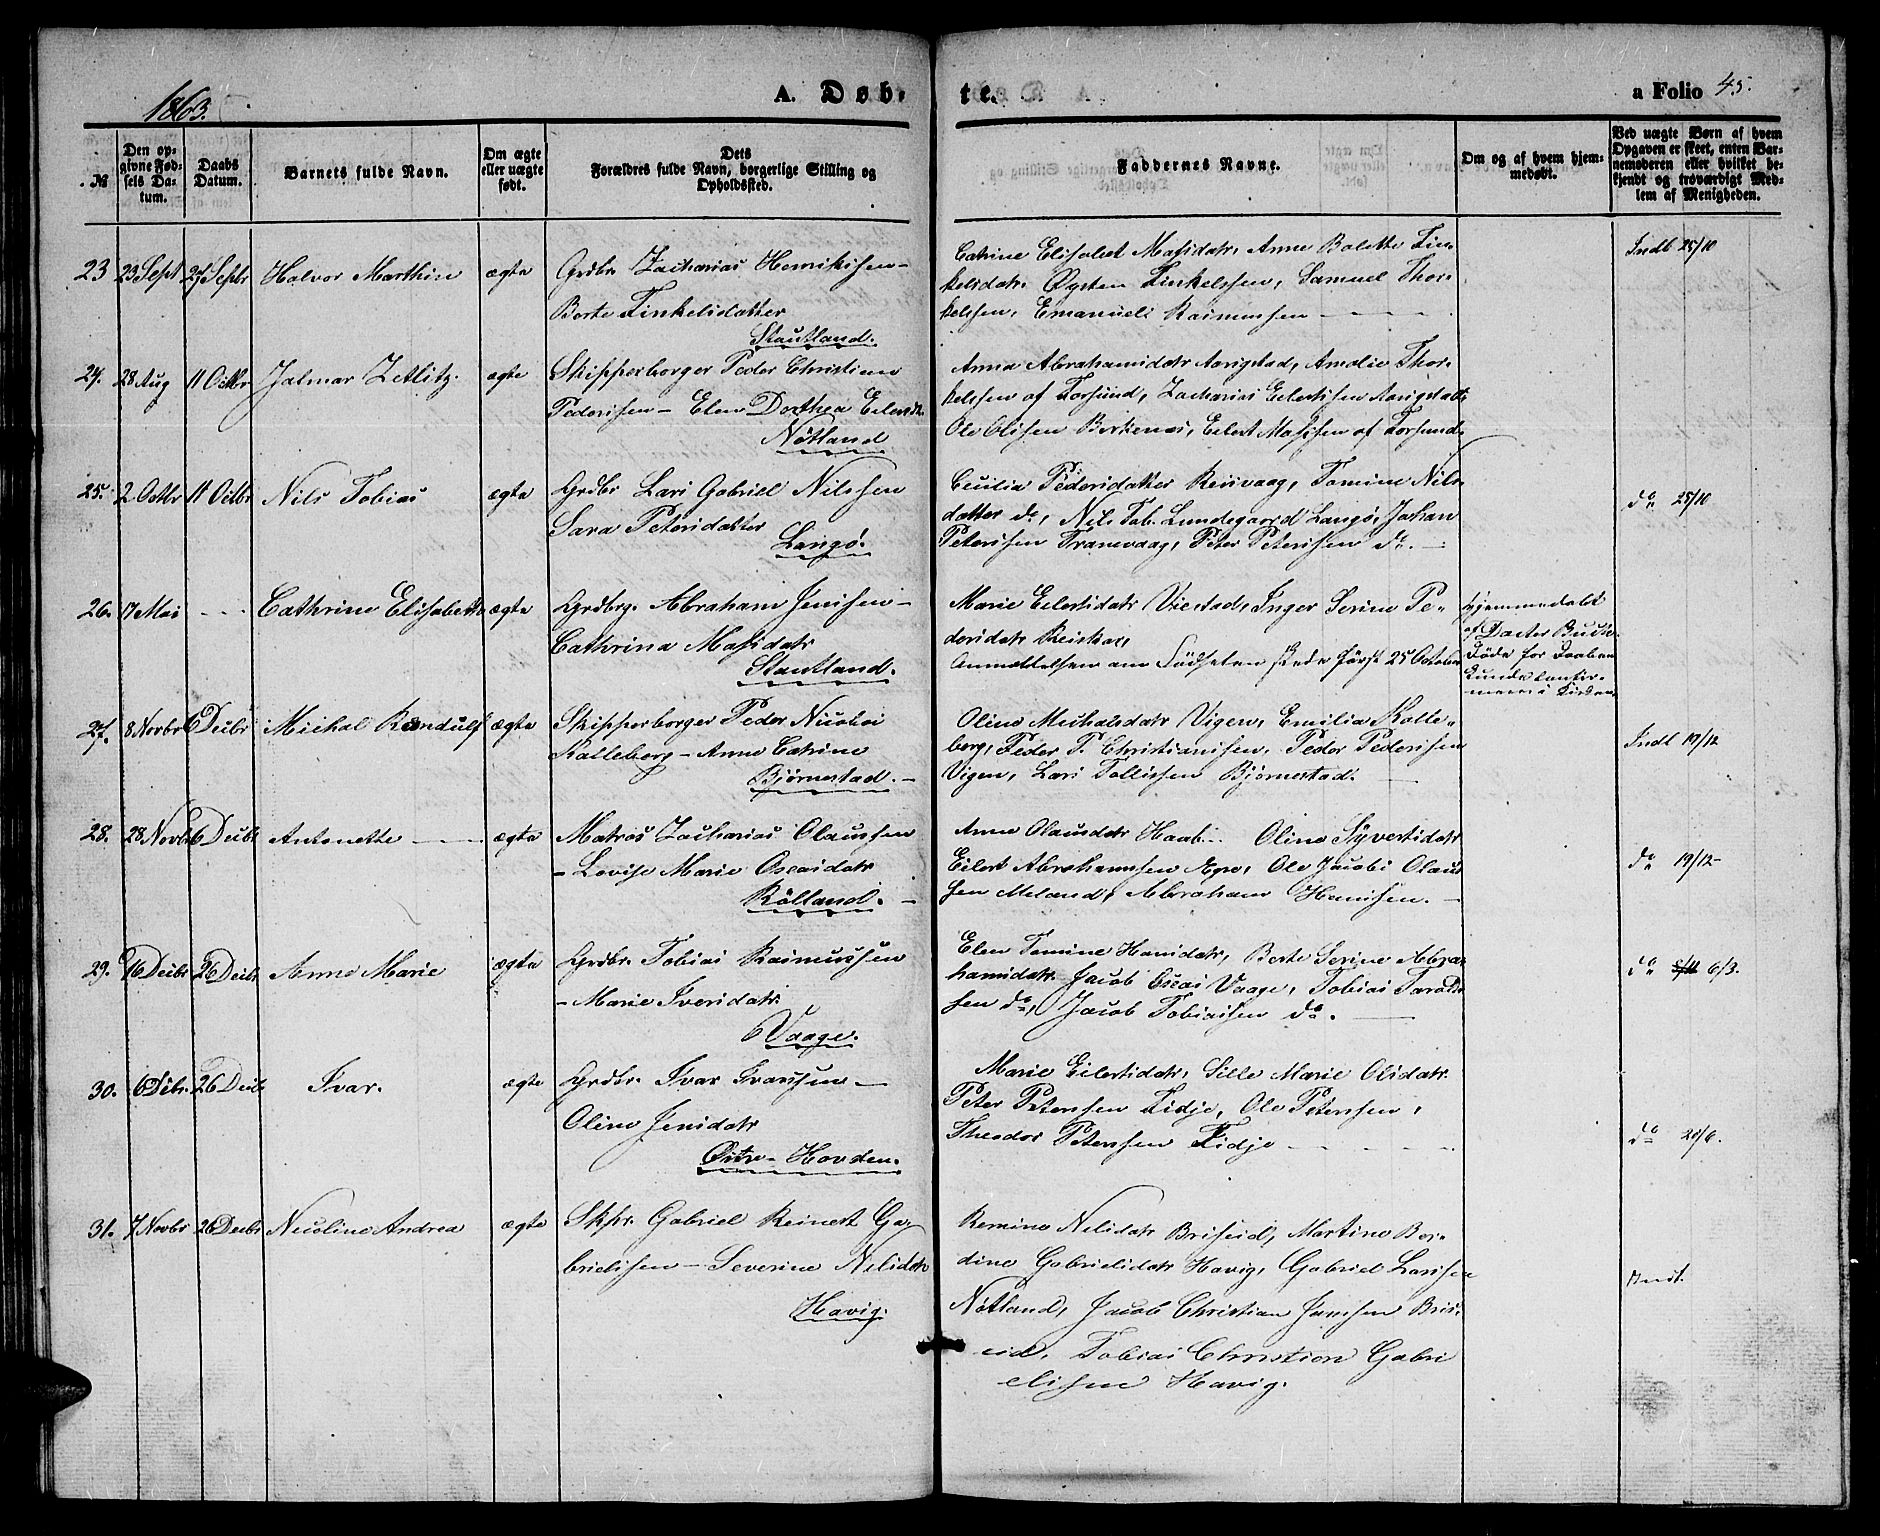 1863.
A. Døb-
te.
a Folio 45.
№
Den op-
givne Fød-
sels Da-
tum.
Daabs
Datum.
Barnets fulde Navn.
Om ægte
eller uægte
født.
Dets
Forældres fulde Navn, borgerlige Stilling og
Opholdssted.
Faddernes Navne.
Om og af hvem hjem-
medøbt.
Ved uægte Børn af hvem
Opgaven er skeet, enten Bar-
nemoderen eller hvilket be-
kjendt og troværdigt Med-
lem af Menigheden.
23 23 Sept 27 Septbr Halvor Marthin ægte Grdbr. Zacharias Henriksen -
Berte Tinkelsdatter
Stautland.
Catrine Elisabet Masidatr, Anne Bolette Tin-
kelsdatr. Øysten Tinkelssen, Samuel Thor-
kelssen, Emanuel Rasmussen
Indb 25/10
24. 28 Aug 11 Octbr Jalmar Zetlitz. ægte Skipperborger Peder Christian
Pedersen - Elen Dorthea Eilertdr.
Nøtland
Anna Abrahamsdatr Aarigstad, Amalie Thor-
kelssen af Forsund, Zacharias Eilertsen Aarigstad,
Ole Olsen Birkenes, Eilert Massen af Forsund.
25. 2 Octbr 11 Octbr Nils Tobias ægte Grdbr Lars Gabriel Nilssen
Sara Petersdatter
Langø.
Cecilia Pedersdatter Revsvaag, Tomine Nils-
datter do, Nils Tob. Lundegaard Langø, Johan
Peterssen Tranevaag, Peter Peterssen do.
do 25/10
26. 17 Mai - - - Cathrine Elisabeth ægte Grdbrg. Abraham Jensen -
Cathrina Masidatr
Stautland.
Marie Eilertsdatr Viestad, Inger Serine Pe-
dersdatr Reiskar,
Anmeldelsen om Fødselen skede først 25 October
Hjemmedøbt
af
Døde for Daaben
kunde
i Kirken
27. 8 Novbr 6 Decbr Michal Randulf ægte Skipperborger Peder Nicolai
Kalleberg - Anne Catrine
Bjørnestad. -
Oline Michalsdatr Vigen, Emilia Kalle-
berg, Peder P. Christiansen, Peder Pedersen
Vigen, Lars Tollissen Bjørnestad.
Indb 19/12
28. 28 Novbr 6 Decbr Antonette ægte Matros Zacharias Olaussen
- Lovise Marie Oseasdatr
Røiland. -
Anne Olausdatr Haab. Oline Syvertsdatr
Eilert Abrahamsen Egra, Ole Jacob Olaus-
sen Meland, Abraham Hansen.
do 19/12 -
29. 16 Decbr 26 Decbr Anne Marie ægte Grdbr. Tobias Rasmussen
- Marie Iversdatr.
Vaage.
Elen Tomine Hansdatr, Berte Serine Abra-
hamsdatr. Jacob Oseas Vaage, Tobias Tarald-
sen do, Jacob Tobiassen do.
do 6/3.
30. 6 Decbr. 26 Decbr Ivar. ægte Grdbr. Ivar Ivarssen -
Oline Jensdatr
Østre - Hovden.
Marie Eilertsdatr, Sille Marie Olsdatr.
Peter Peterssen Tidje, Ole Peterssen,
Theodor Peterssen Tidje
do 20/6.
31. 7 Novbr 26 Decbr Nicoline Andrea ægte Skpr. Gabriel Reinert Ga-
brielssen - Severine Nilsdatr
Havig.
Remine Nilsdatr Briseid, Martine Ber-
dine Gabrielsdatr Havig, Gabriel Larssen
Nøtland, Jacob Christian Jenssen Bris-
eid, Tobias Christian Gabri
elssen Havig.